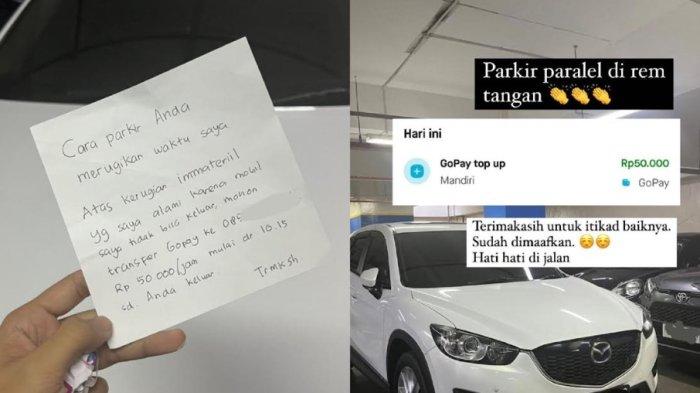 Cara parkir Anda
merugikan waktu saya
Atas kerugian immateriil
yg saya alami karena mobil
saya tidak bisa keluar, mohon
transfer Gopay ke 085
Rp 50.000/jam mulai dr 10.15
sd. Anda keluar.
Trmksh
Parkir paralel di rem
tangan 👏👏👏
Hari ini
GoPay top up
Rp50.000
Mandiri
GoPay
Terimakasih untuk itikad baiknya.
Sudah dimaafkan. ☺️☺️
Hati hati di jalan